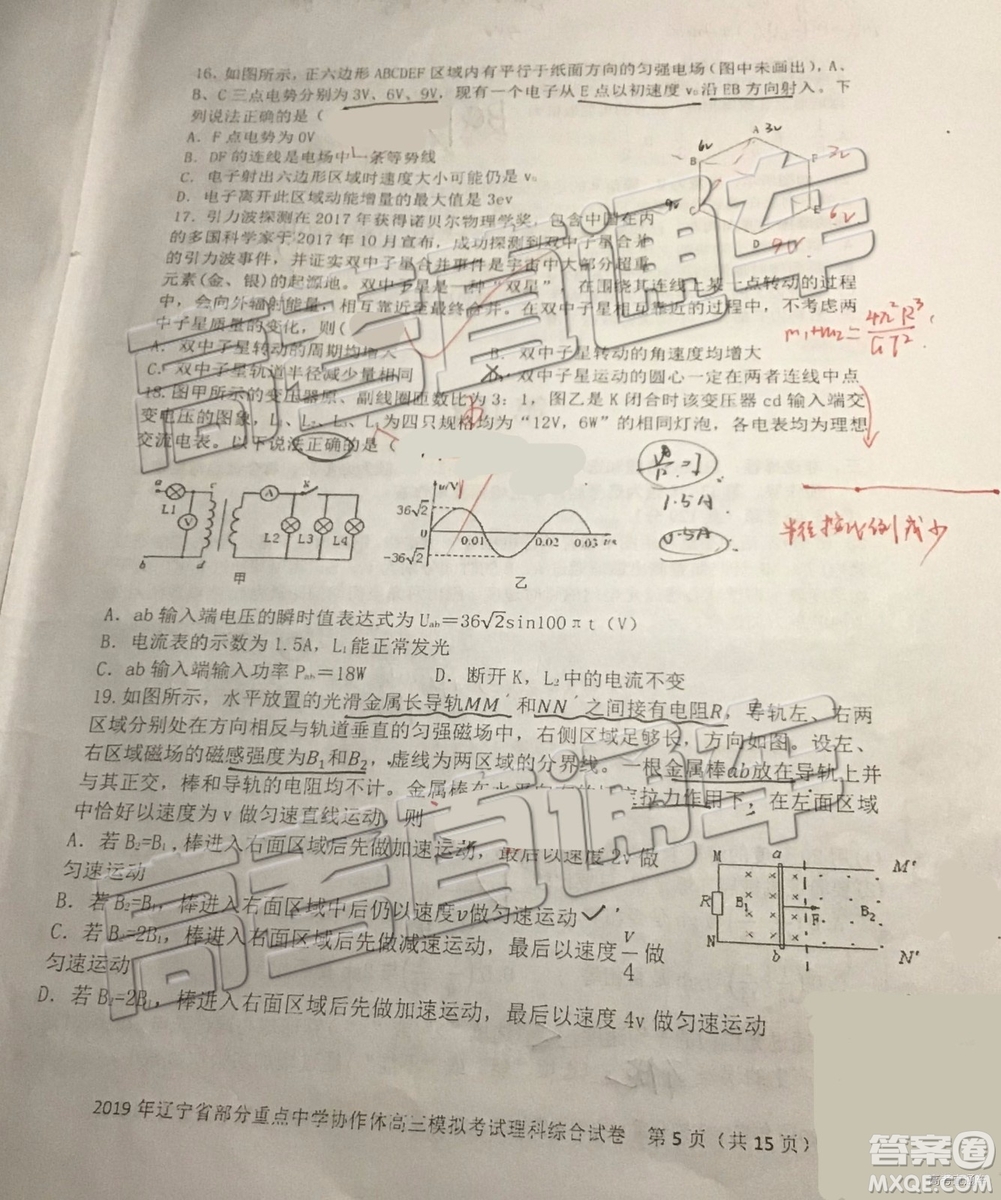 16. 如图所示，正六边形 ABCDEF 区域内有平行于纸面方向的匀强电场（图中未画出），A、
B、C 三点电势分别为 3V、6V、9V，现有一个电子从 E 点以初速度 v₀沿 EB 方向射入。下
列说法正确的是（
A. F 点电势为 0V
B. DF 的连线是电场中一条等势线
C. 电子射出六边形区域时速度大小可能仍是 v₀
D. 电子离开此区域动能增量的最大值是 3ev
17. 引力波探测在 2017 年获得诺贝尔物理学奖，包含中国在内
的多国科学家于 2017 年 10 月宣布，成功探测到双中子星合并
的引力波事件，并证实双中子星合并事件是宇宙中大部分超重
元素(金、银)的起源地。双中子星是一种“双星”，在围绕其连线上某一点转动的过程
中，会向外辐射能量，相互靠近至最终合并。在双中子星相互靠近的过程中，不考虑两
中子星质量的变化，则（
A. 双中子星转动的周期均增大
B. 双中子星转动的角速度均增大
C. 双中子星轨道半径减少量相同
双中子星运动的圆心一定在两者连线中点
18. 图甲所示的变压器原、副线圈匝数比为 3：1，图乙是 K 闭合时该变压器 cd 输入端交
变电压的图象，L₁、L₂、L₃、L₄为四只规格均为“12V，6W”的相同灯泡，各电表均为理想
交流电表。以下说法正确的是（
A 3v
6v B
F 3v
9v C
E 6v
D 9v
m₁+m₂=4π²R³/GT²
1.5A
0.5A
半径按比例减少
a
L1
c
V
b
d
A
K
L2
L3
L4
甲
u/V
36√2
0
-36√2
0.01
0.02
0.03
t/s
乙
A. ab 输入端电压的瞬时值表达式为 Uₐb＝36√2sin100πt（V）
B. 电流表的示数为 1.5A，L₁能正常发光
C. ab 输入端输入功率 Pₐb＝18W
D. 断开 K，L₂中的电流不变
19. 如图所示，水平放置的光滑金属长导轨MM′和NN′之间接有电阻R，导轨左、右两
区域分别处在方向相反与轨道垂直的匀强磁场中，右侧区域足够长，方向如图。设左、
右区域磁场的磁感强度为B₁和B₂，虚线为两区域的分界线。一根金属棒ab放在导轨上并
与其正交，棒和导轨的电阻均不计。金属棒在水平向右的恒定拉力作用下，在左面区域
中恰好以速度为 v 做匀速直线运动，则
A. 若 B₂=B₁，棒进入右面区域后先做加速运动，最后以速度 2v 做
匀速运动
B. 若B₂=B₁，棒进入右面区域中后仍以速度v做匀速运动
C. 若B₂=2B₁，棒进入右面区域后先做减速运动，最后以速度v/4做
匀速运动
D. 若B₂=2B₁，棒进入右面区域后先做加速运动，最后以速度 4v 做匀速运动
M
a
M′
R
B₁
F
B₂
N
b
N′
2019 年辽宁省部分重点中学协作体高三模拟考试理科综合试卷 第 5 页（共 15 页）
高三直通车
高三直通车
答案圈
MXQE.COM